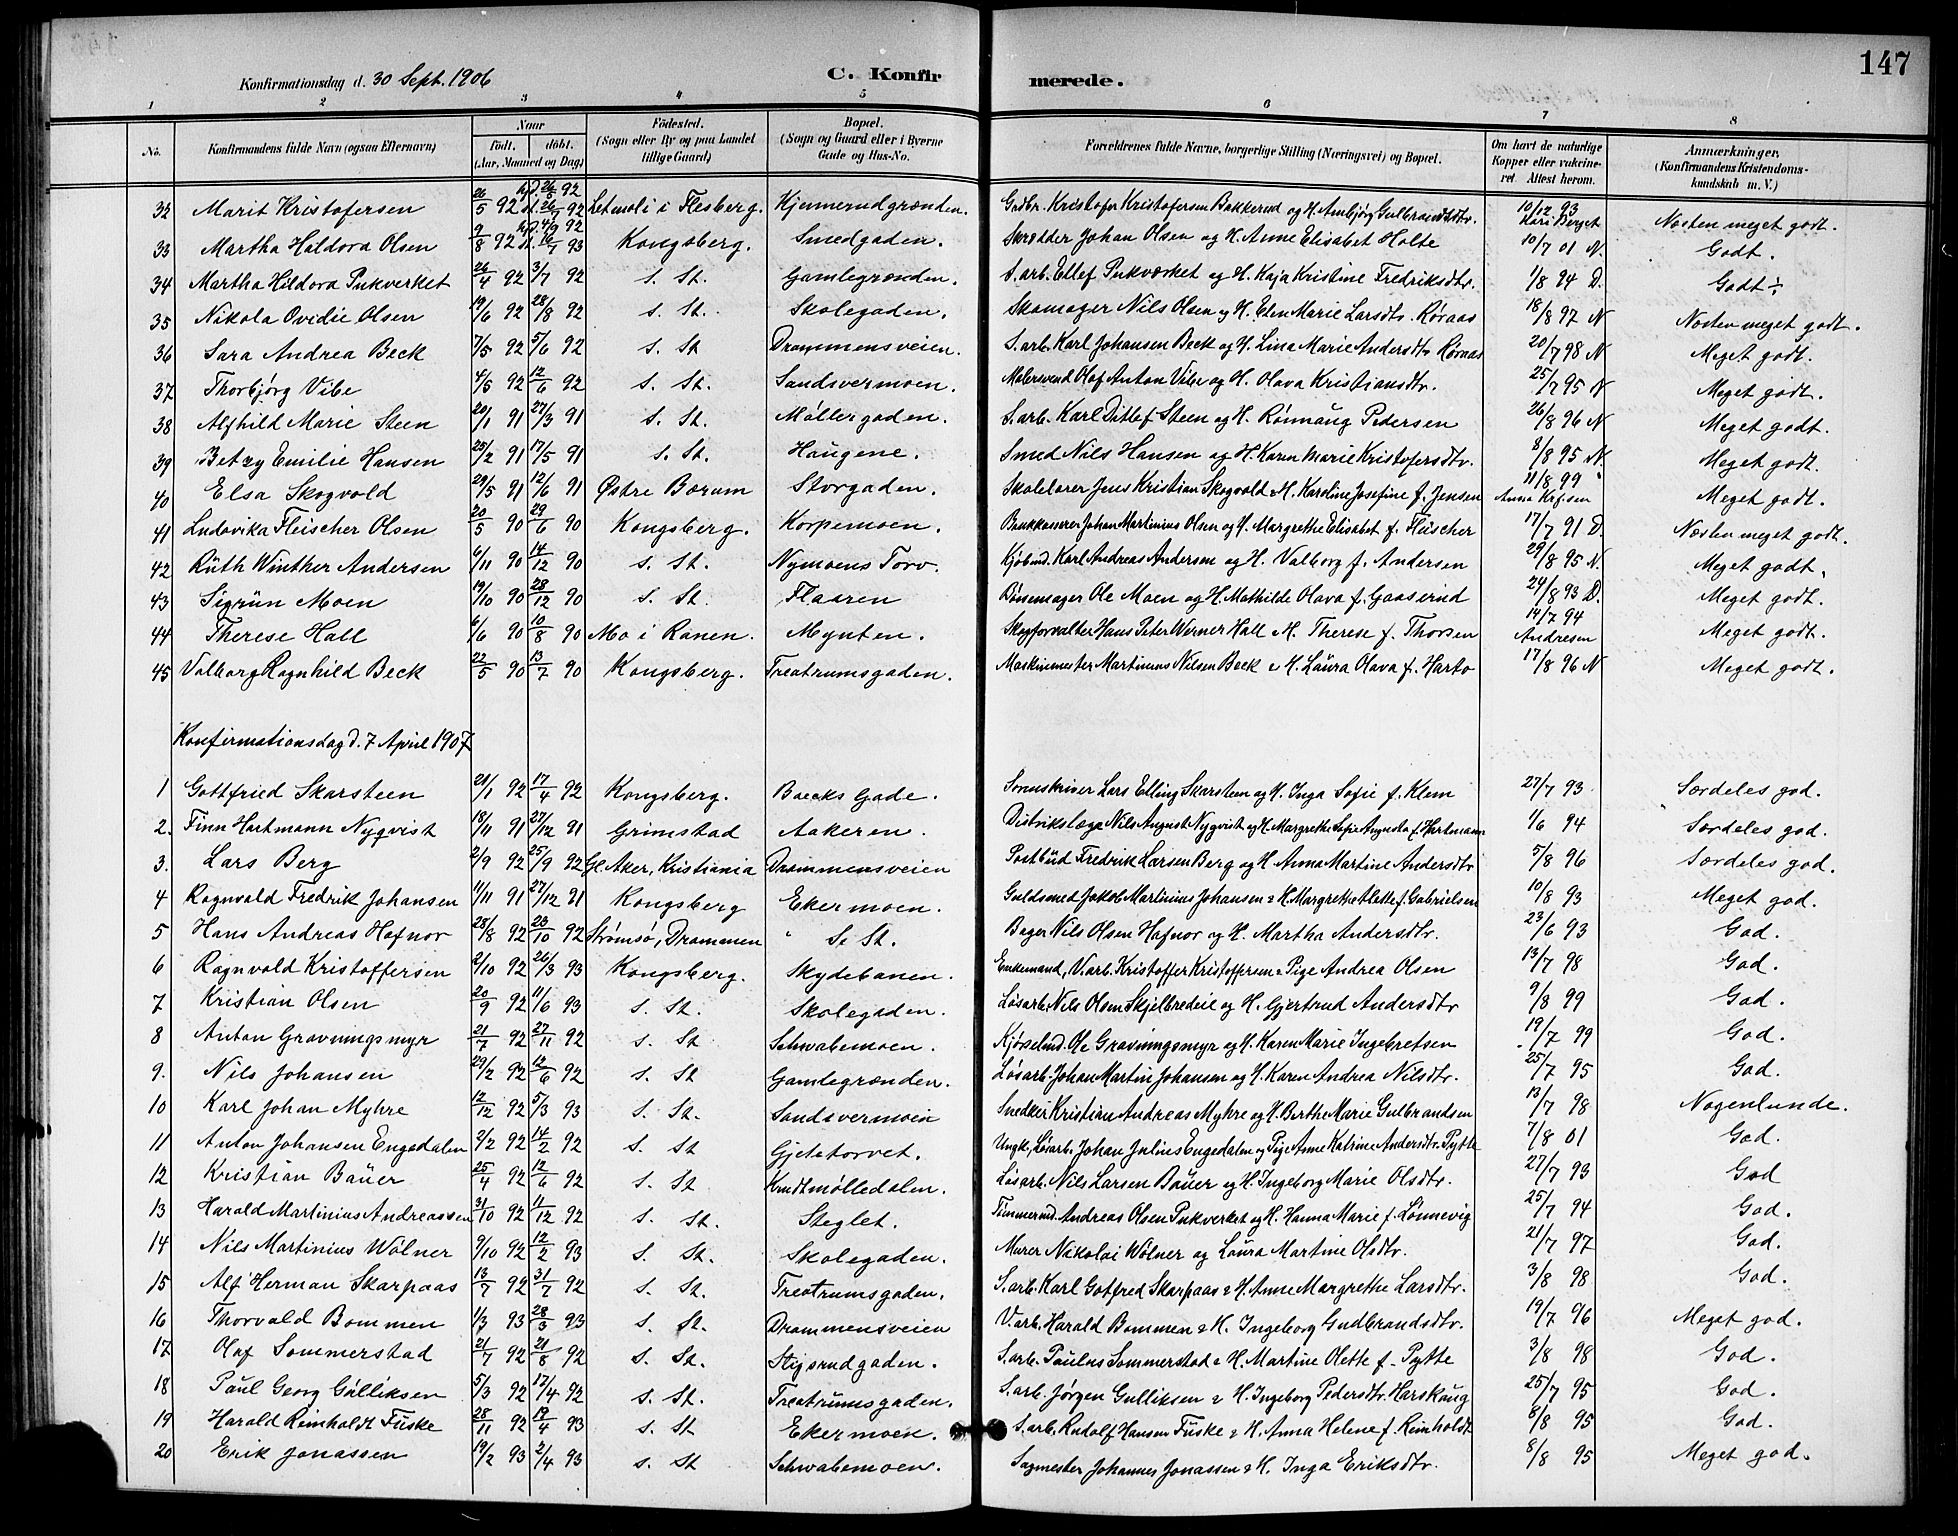 147
Konfirmationsdag d. 30 Sept. 1906 C. Konfirmerede.
1 2 3 4 5 6 7 8
No. Konfirmandens fulde Navn (ogsaa Efternavn) Naar født. døbt. (Aar, Maaned og Dag) Fødested. (Sogn eller By og paa Landet tillige Gaard) Bopæl. (Sogn og Gaard eller i Byerne Gade og Hus-No. Forældrenes fulde Navne, borgerlige Stilling (Næringsvei) og Bopæl. Om havt de naturlige Kopper eller vakcineret Attest herom. Anmærkninger. (Konfirmandens Kristendomskundskab m. V.)
32 Marit Kristofersen 26/5 92 hjd. 26/5 92 d. 26/7 92 Letmoli i Flesberg. Kjennerudgrænden. Grdbr. Kristofer Kristofersen Bakkerud og H. Ambjørg Gulbrandsdtr. 10/12 93 Kari Berget Næsten meget godt.
33 Martha Haldora Olsen 9/8 92 hjd. 4/9 92 d. 16/7 93 Kongsberg. Smedgaden. Skrædder Johan Olsen og H. Anne Elisabet Holte 10/7 01 N. Godt.
34 Martha Hildora Pukverket 26/4 92 3/7 92 s. St. Gamlegrænden. S. arb. Ellef Pukværket og H. Kaja Kristine Fredriksdtr. 1/8 94 D. Godt ÷
35 Nikola Ovidie Olsen 19/6 92 28/8 92 s. St. Skolegaden. Skomager Nils Olsen og H. Elen Marie Larsdtr. Røraas 18/8 97 N Næsten meget godt.
36 Sara Andrea Beck 7/5 92 5/6 92 s. St Drammensveien. S. arb. Karl Johansen Beck og H. Lina Marie Andersdtr Røraas 20/7 98 N Meget godt.
37 Thorbjørg Vibe 4/5 92 12/6 92 s. St. Sandsvermoen. Malersvend Olaf Anton Vibe og H. Olava Kristiansdtr. 25/7 95 N Meget godt.
38 Alfhild Marie Steen 20/1 91 27/3 91 s. St. Møllergaden. S. arb. Karl Ditlef Steen og H. Rønnaug Pedersen 26/8 96 N Meget godt.
39 Betzy Emilie Hansen 25/2 91 17/5 91 s. St. Haugene. Smed Nils Hansen og H. Karen Marie Kristofersdtr. 8/8 95 N. Meget godt.
40 Elsa Skogvold 29/5 91 12/6 91 Østre Bærum Storgaden. Skolelærer Jens Kristian Skogvold & H. Karoline Josefine f. Jensen 11/8 99 Anna Meget godt.
41 Ludovika Fleischer Olsen 20/5 90 29/6 90 Kongsberg. Korpemoen. Brukkasserer Johan Martinius Olsen og H. Margrethe Elisabet f. Fleischer 17/7 91 D. Næsten meget godt.
42 Ruth Winther Andersen 6/11 90 14/12 90 s. St. Nymoens Torv. Kjøbmd. Karl Andreas Andersen og H. Valborg f. Andersen 29/8 95 N. Meget godt.
43 Sigrun Moen 19/10 90 28/12 90 s. St. Flaaren Bøssemager Ole Moen og H. Mathilde Olava f. Gaaserud 24/8 93 D. Meget godt.
44 Therese Hall 6/6 90 10/8 90 Mo i Ranen. Mynten. Skogforvalter Hans Peter Werner Hall & H. Therese f. Thorsen 14/7 94 Andresen Meget godt.
45 Valborg Ragnhild Beck 22/5 90 13/7 90 Kongsberg. Treatrumsgaden. Maskinmester Martinius Nilsen Beck & H. Laura Olava f. Harto 17/8 96 N Meget godt.
Konfirmationsdag d. 7 April 1907
1 Gottfried Skarsteen 21/1 92 17/4 92 Kongsberg. Baecks Gade. Sorenskriver Lars Elling Skarsteen og H. Inga Sofie f. Klem 27/7 93 Særdeles god.
2. Finn Hartmann Nyqvist 18/11 91 27/12 91 Grimstad Aakeren. Distriktslæge Nils August Nyqvist og H. Margrethe Sofie Augusta f. Hartmann 1/6 94 Særdeles god.
3. Lars Berg 2/9 92 25/9 92 Gl. Aker, Kristiania Drammensveien Postbud Fredrik Larsen Berg og H. Anna Martine Andersdtr 5/8 96 Særdeles god.
4 Ragnvald Fredrik Johansen 11/11 91 27/12 91 Kongsberg Ekermoen. Guldsmed Jakob Martinius Johansen & H. Margrethe Alette f. Gabrielsen 10/8 93 Meget god.
5 Hans Andreas Hafnor 28/8 92 23/10 92 Strømsø, Drammen s. St. Bager Nils Olsen Hafnor og H. Martha Andersdtr. 23/6 93 God.
6 Ragnvald Kristoffersen 2/10 92 26/3 93 Kongsberg. Skydebanen. Enkemand, V. arb. Kristoffer Kristoffersen & Pige Andrea Olsen 13/7 98 God.
7 Kristian Olsen 20/9 92 11/6 93 s. St. Skolegaden. Løsarb. Nils Olsen Skjelbredeie og H. Gjertrud Andersdtr 9/8 99 God.
8 Anton Gravningsmyr 21/7 92 27/11 92 s. St Schwabemoen. Kjøselmd. Ole Gravningsmyr og H. Karen Marie Ingebretsen 19/7 99 God.
9. Nils Johansen 29/2 92 12/6 92 s. St Gamlegrænden. Løsarb. Johan Martin Johansen og H. Karen Andrea Nilsdtr. 25/7 95 God.
10 Karl Johan Myhre 12/12 92 5/3 93 s. St. Sandsvermoen Snedker Kristian Andreas Myhre og H. Berthe Marie Gulbrandsen 13/7 98 Nogenlunde.
11 Anton Johansen Engedalen 2/2 92 14/2 92 s. St Gjetetorvet. Ungk., Løsarb. Johan Julius Engedalen og Pige Anne Katrine Andersdtr. Pytte 7/8 01 God.
12 Kristian Bauer 25/4 92 12/6 92 s. St Krudtmølledalen. Løsarb. Nils Larsen Bauer og H. Ingeborg Marie Olsdtr. 27/7 93 God
13 Harald Martinius Andreassen 31/10 92 11/12 92 s. St. Steglet. Tømmermd. Andreas Olsen Pukverket og H. Hanna Marie f. Lønnevig 25/7 94 God.
14 Nils Martinius Wølner 9/10 92 12/2 93 s. St. Skolegaden. Murer Nikolai Wølner og Laura Martine Olsdtr. 21/7 97 God.
15 Alf Herman Skarpaas 13/7 92 31/7 92 s. St. Treatrumsgaden. S. arb. Karl Gotfred Skarpaas & H. Anne Margrethe Larsdtr. 3/8 98 God.
16 Thorvald Bommen 1/3 93 28/3 93 s. St. Drammensveien V. arb. Harald Bommen & H. Ingeborg Gudbrandsdtr. 19/7 96 Meget god.
17 Olaf Sommerstad 21/7 92 21/8 92 s. St. Stigsrudgaden. S. arb. Paulus Sommerstad & H. Martine Olette f. Pytte 3/8 98 God.
18 Paul Georg Gulliksen 5/3 92 17/4 92 s. St. Treatrumsgaden. S. arb. Jørgen Gulliksen & H. Ingeborg Pedersdtr. Harskaug 25/7 95 God.
19 Harald Reinholdt Fuske 28/11 92 19/4 93 s. St Ekermoen. S. arb. Rudolf Hansen Fuske & H. Anna Helene f. Reinholdt 8/8 95 God.
20 Erik Jonassen 19/2 93 2/4 93 s. St Schwabemoen. Sagmester Johannes Jonassen & H. Inga Eriksdtr. 8/8 95 Meget god.